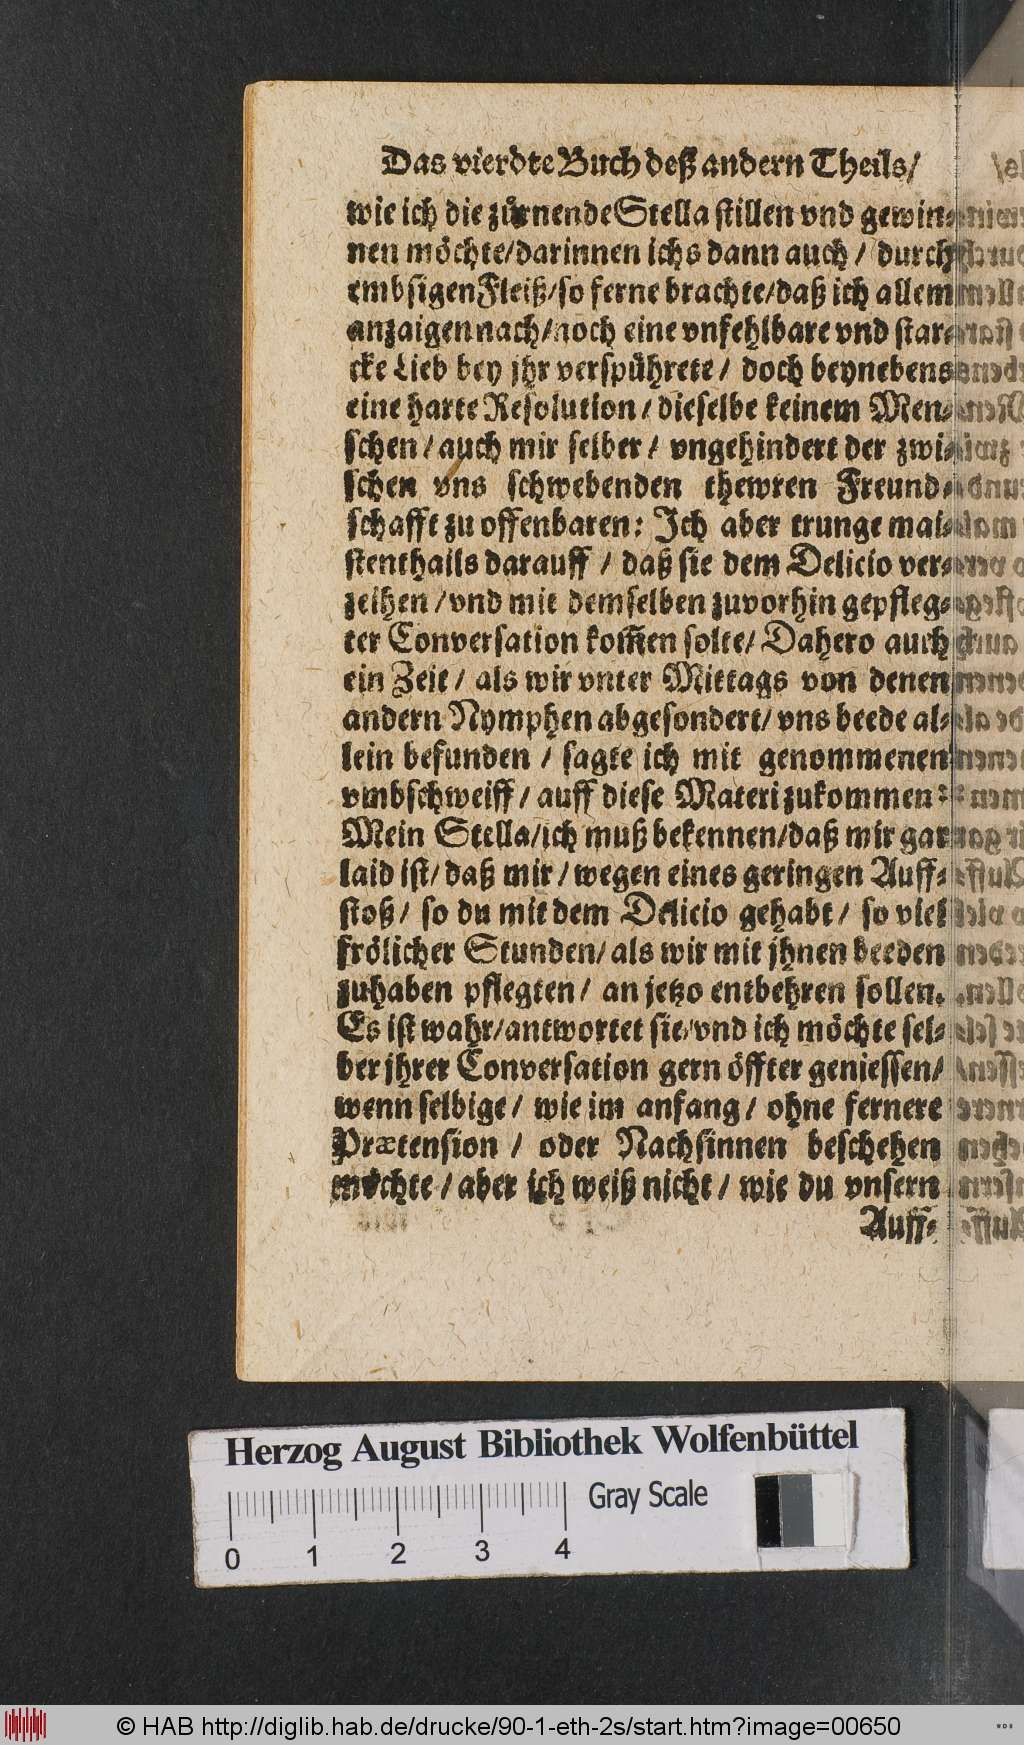 Das vierdte Buch deß andern Theils/
wie ich die zuͤrnende Stella stillen vnd gewin-
nen moͤchte/darinnen ichs dann auch / durch
embsigen Fleiß/so ferne brachte/daß ich allem
anzaigen nach/noch eine vnfehlbare vnd star-
cke Lieb bey jhr verspührete / doch beynebens
eine harte Resolution / dieselbe keinem Men-
schen / auch mir selber / vngehindert der zwi-
schen vns schwebenden thewren Freund-
schafft zu offenbaren: Jch aber trunge mai-
stenthails darauff / daß sie dem Delicio ver-
zeihen / vnd mit demselben zuvorhin gepfleg-
ter Conversation kom̃en solte/ Dahero auch
ein Zeit / als wir vnter Mittags von denen
andern Nymphen abgesondert/ vns beede al-
lein befunden / sagte ich mit genommenen
vmbschweiff / auff diese Materi zukommen:
Mein Stella/ich muß bekennen/daß mir gar
laid ist/ daß mir / wegen eines geringen Auff-
stoß/ so du mit dem Delicio gehabt / so viel
frölicher Stunden/ als wir mit jhnen beeden
zuhaben pflegten / an jetzo entbehren sollen.
Es ist wahr/antwortet sie/vnd ich möchte sel-
ber jhrer Conversation gern öffter geniessen/
wenn selbige / wie im anfang / ohne fernere
Prætension / oder Nachsinnen beschehen
möchte / aber ich weiß nicht / wie du vnsern
Auff-
Herzog August Bibliothek Wolfenbüttel
Gray Scale
0 1 2 3 4
© HAB http://diglib.hab.de/drucke/90-1-eth-2s/start.htm?image=00650